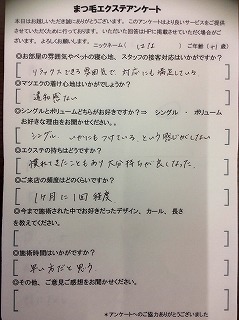 まつ毛エクステアンケート
本日はお越しいただき誠にありがとうございます。このアンケートはより良いサービスをご提供
させていただくために行っております。いただいた回答はHPに掲載させていただく場合がご
ざいます。よろしくお願いします。
ニックネーム( はな ) ご年齢( 41 歳)
◎お部屋の雰囲気やベットの寝心地、スタッフの接客対応はいかがですか?
リラックスできる雰囲気で 対応も満足している
◎マツエクの着け心地はいかがでしょうか?
違和感ない
◎シングルとボリュームどちらがお好きですか?⇒ シングル ・ ボリューム
お好きな理由をお聞かせください。
シングル いかにもつけている という感じがしない
◎エクステの持ちはどうですか?
慣れてきたこともあり大分持ちが良くなった。
◎ご来店の頻度はどのくらいですか?
1ヶ月に1回程度
◎今まで施術された中でお好きだったデザイン、カール、長さ
を教えてください。
◎施術時間はいかがですか?
早い方だと思う
◎その他、ご意見ご感想をお聞かせください。
*アンケートへのご協力ありがとうございました